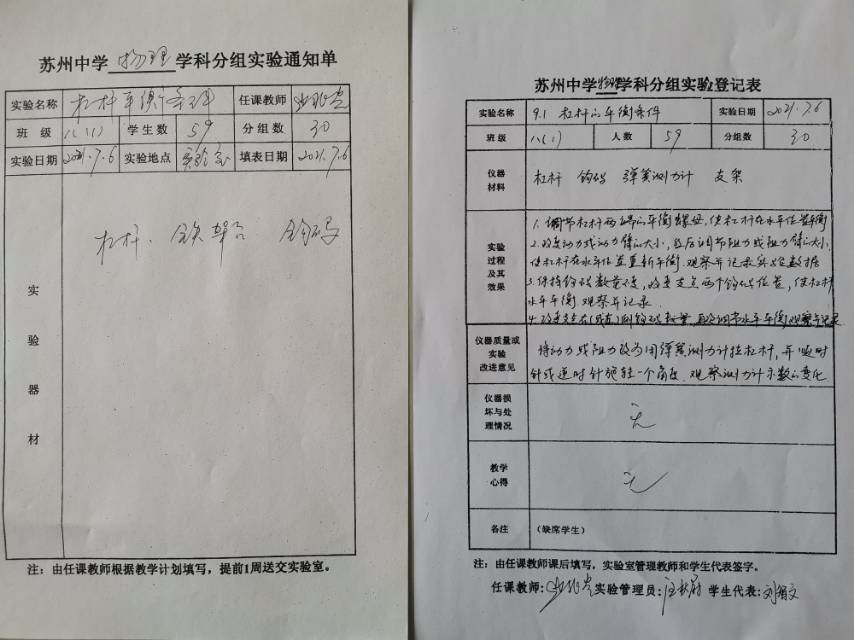 苏州中学 物理 学科分组实验通知单
实验名称 杠杆平衡条件 任课教师
班 级 八(1) 学生数 59 分组数 30
实验日期 2021.7.6 实验地点 实验室 填表日期 2021.7.6
实验器材
杠杆、铁架台 钩码
注：由任课教师根据教学计划填写，提前1周送交实验室。
苏州中学物理学科分组实验登记表
实验名称 9.1 杠杆的平衡条件 实验日期 2021.7.6
班 级 八(1) 人数 59 分组数 30
仪器材料
杠杆 钩码 弹簧测力计 支架
实验过程及其效果
1. 调节杠杆两端的平衡螺母，使杠杆在水平位置平衡
2. 改变动力或动力臂的大小，然后调节阻力或阻力臂的大小，
使杠杆在水平位置重新平衡. 观察并记录实验数据
3. 保持钩码数量不变，改变支点两个钩码位置，使杠杆
水平平衡 观察并记录
4. 改变支点左(或右)侧钩码数量，再次调节水平平衡 观察并记录
仪器质量或实验改进意见
将动力或阻力改为用弹簧测力计拉杠杆，并顺时
针或逆时针旋转一个角度. 观察测力计示数的变化
仪器损坏与处理情况
无
教学心得
无
各注 （缺席学生）
注：由任课教师课后填写，实验室管理教师和学生代表签字。
任课教师: 实验管理员: 学生代表: